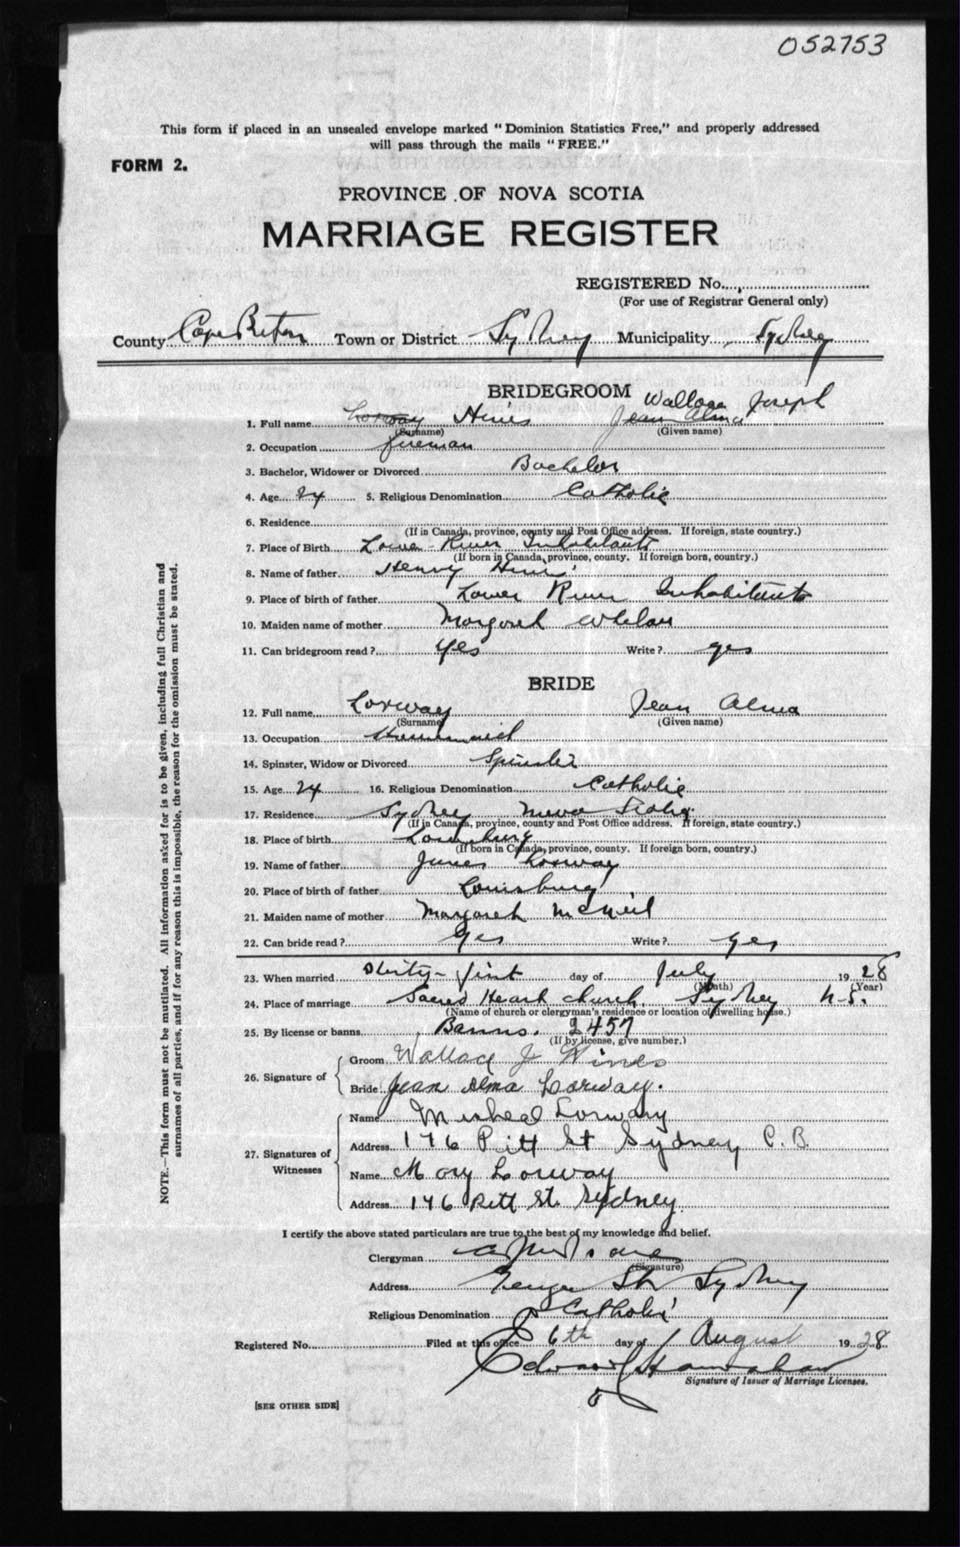 052753
This form if placed in an unsealed envelope marked "Dominion Statistics Free," and properly addressed
will pass through the mails "FREE."
FORM 2.
PROVINCE OF NOVA SCOTIA
MARRIAGE REGISTER
REGISTERED No.
(For use of Registrar General only)
County Cape Breton Town or District Sydney Municipality Sydney
BRIDEGROOM Wallace Joseph
1. Full name Lorway Hines Jean Alma
(Surname) (Given name)
2. Occupation fireman
3. Bachelor, Widower or Divorced Bachelor
4. Age 24 5. Religious Denomination Catholic
6. Residence
(If in Canada, province, county and Post Office address. If foreign, state country.)
7. Place of Birth Lower River Inhabitants
(If born in Canada, province, county. If foreign born, country.)
8. Name of father Henry Hines
9. Place of birth of father Lower River Inhabitants
10. Maiden name of mother Margaret Whelan
11. Can bridegroom read? Yes Write? yes
BRIDE
12. Full name Lorway Jean Alma
(Surname) (Given name)
13. Occupation
14. Spinster, Widow or Divorced Spinster
15. Age 24 16. Religious Denomination Catholic
17. Residence Sydney Nova Scotia
(If in Canada, province, county and Post Office address. If foreign, state country.)
18. Place of birth Louisburg
(If born in Canada, province, county. If foreign born, country.)
19. Name of father Lorway
20. Place of birth of father Louisburg
21. Maiden name of mother Margaret McNeil
22. Can bride read? Yes Write? yes
23. When married thirty-first day of July 1928
(Month) (Year)
24. Place of marriage Sacred Heart church Sydney N.S.
(Name of church or clergyman's residence or location of dwelling house.)
25. By license or banns Banns. 2457
(If by license, give number.)
26. Signature of
Groom Wallace J Hines
Bride Jean Alma Lorway.
27. Signatures of Witnesses
Name Micheal Lorway
Address 176 Pitt St Sydney C.B.
Name Mary Lorway
Address 176 Pitt St. Sydney
I certify the above stated particulars are true to the best of my knowledge and belief.
Clergyman
(Signature)
Address George St Sydney
Religious Denomination Catholic
Registered No. Filed at this office 6th day of August 1928
Edward Hanrahan
Signature of Issuer of Marriage Licenses.
[SEE OTHER SIDE]
NOTE.—This form must not be mutilated. All information asked for is to be given, including full Christian and
surnames of all parties, and if for any reason this is impossible, the reason for the omission must be stated.